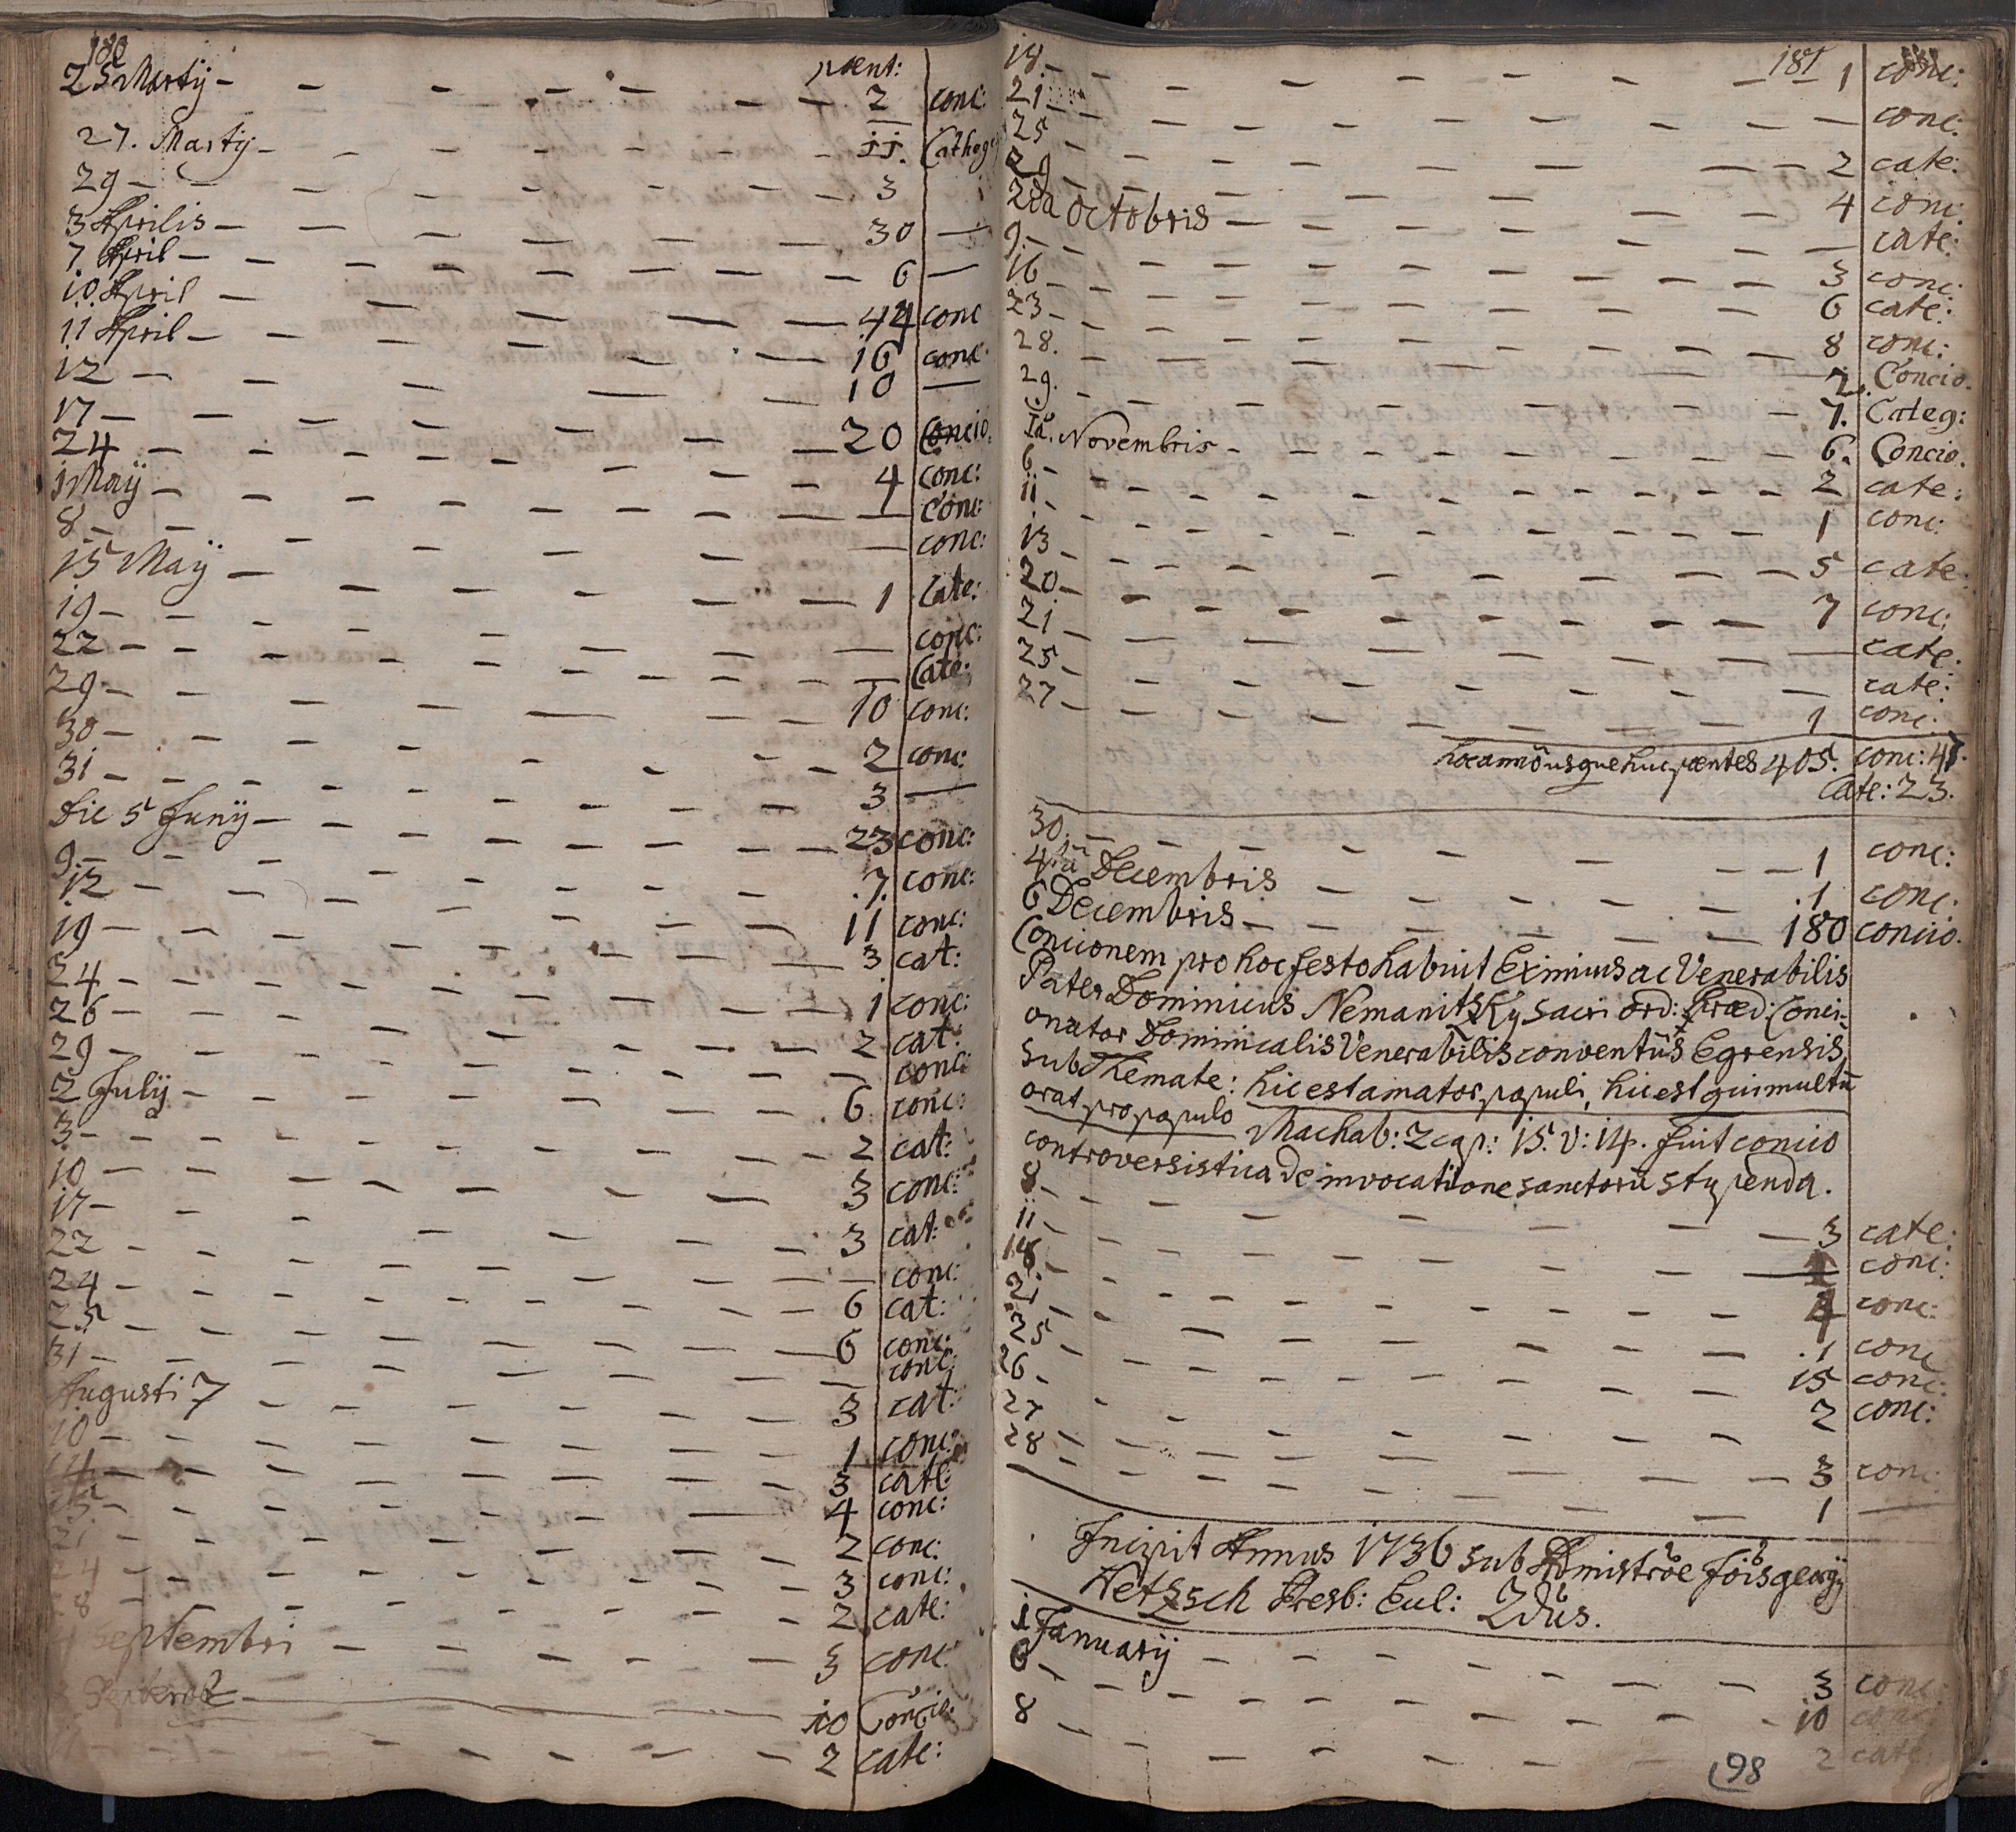 180
pœnt:
25 Martÿ - 2 conc:
27. Martÿ - 11. Catheg
29 - 3
3 Aprilis - 30 -
7. April - 6 -
10. April - 44 conc
11 April - 16 conc:
12 - 10 -
17 - 20 Concio.
24 - 4 conc:
1 Maÿ - conc:
8 - conc:
15 Maÿ - 1 Cate:
19 - conc:
22 - Cate:
29 - 10 conc:
30 - 2 conc:
31 - 3 -
Die 5 Junÿ - 23 conc:
9. - .7. conc:
12 - 11 conc:
19 - 3 cat:
24 - 1 conc:
26 - 2 cat:
29 - conc:
2 Julÿ - 6. conc:
3 - 2 cat:
10 - 3 conc:
17 - 3 cat:
22 - conc:
24 - 6 cat:
25 - 6 conc:
31 - conc:
Augusti 7 - 3 cat:
10 - 1 conc:
14 - 3 cate:
15 - 4 conc:
21 - 2 conc:
24 - 3 conc:
28 - 2 cate:
4 Septembri - 3 conc:
10 Concio.
2 cate:
181
18 - 1 conc:
21 - conc:
25 - 2 cate:
29 - 4 conc:
2da Octobris - cate:
9. - 3 conc:
16 - 6 cate:
23 - 8 conc:
28. - 2. Concio.
29. - 7. Categ:
1a. Novembris - 6. Concio.
6 - 2 cate:
11 - 1 conc:
13 - 5 cate:
20 - 7 conc:
21 - cate:
25 - cate:
27 - 1 conc:
hoc anno usque huc pœntes 405. conc: 47.
Cate: 23.
30. - 1 conc:
4ta Decembris - .1 conc:
6 Decembris - 180 concio.
Concionem pro hoc festo habuit Eximius ac Venerabilis
Pater Dominicus Nemanitzky Sacri ord: Præd: Conci-
onator Dominicalis Venerabilis conventûs Egrensis,
sub Themate: hic est amator populi, hic est qui multũ
orat pro populo Machab: 2 cap: 15. v: 14. Fuit concio
controversistica de invocatione sanctorũ stupenda.
8 - 3 cate:
11 - conc:
18. - 4 conc:
21 - .1 conc
25 - 15 conc:
26 - 2 conc:
27 - 3 conc:
28 - 1 -
Incipit Annus 1736 sub Admistrõe Jõis georgÿ
Netzsch Presb: Cul: 2dus.
1 Januarÿ - 3 conc:
6 - 10 conc:
8 - 2 cate:
98